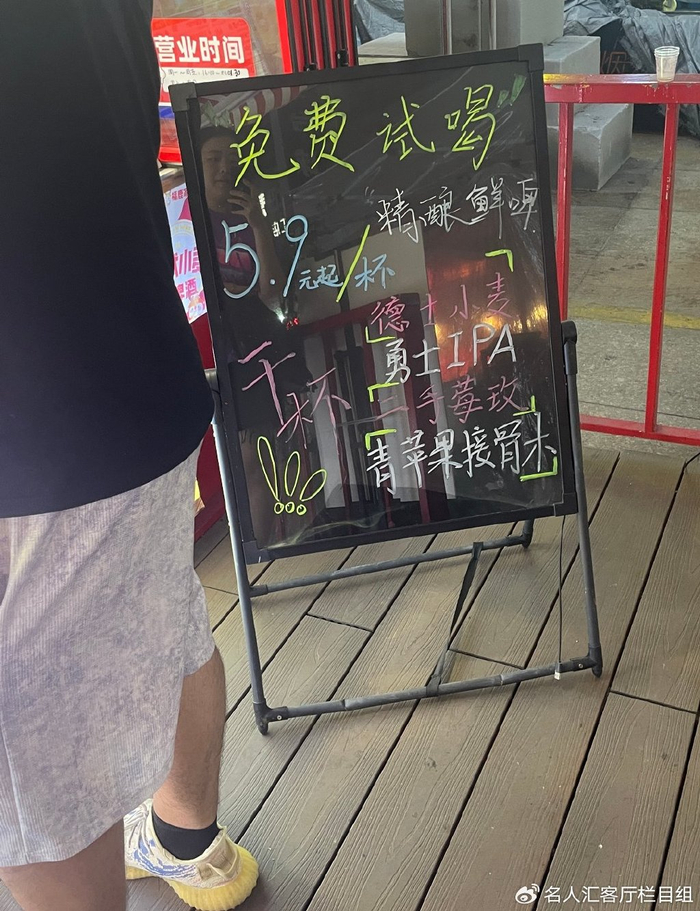 营业时间
免费试喝
精酿鲜啤
5.9元起/杯
德士小麦
勇士IPA
干杯
二手莓玫
青苹果接骨木
名人汇客厅栏目组